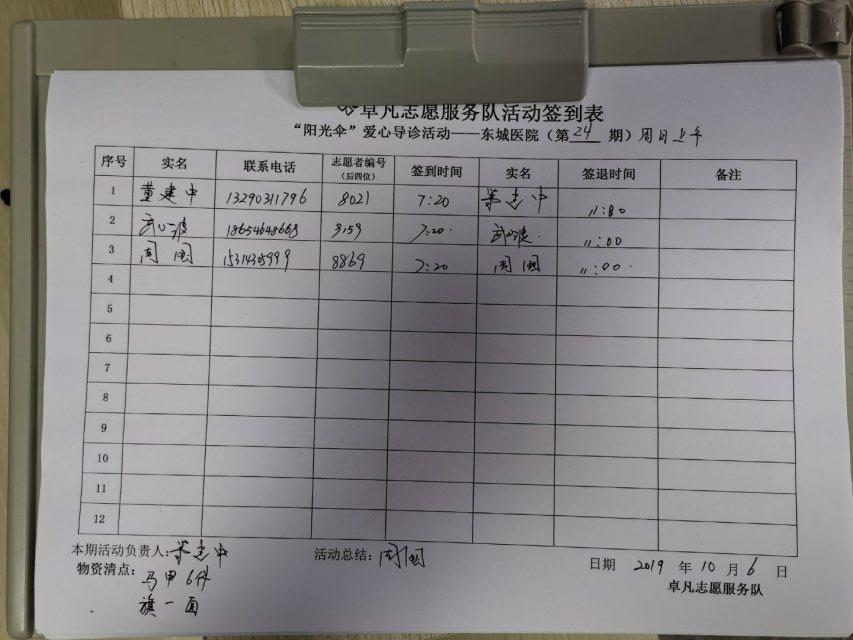 卓凡志愿服务队活动签到表
“阳光伞”爱心导诊活动——东城医院（第 24 期）周日上午
序号 实名 联系电话 志愿者编号（后四位） 签到时间 实名 签退时间 备注
1 董建中 13290311796 8021 7:20 董建中 11:00
2 18654648668 9159 7:20 11:00
3 周国 15314305999 8869 7:20 周国 11:00
4
5
6
7
8
9
10
11
12
本期活动负责人：董建中 活动总结：周国 日期 2019 年 10 月 6 日
物资清点：马甲6件 卓凡志愿服务队
旗一面